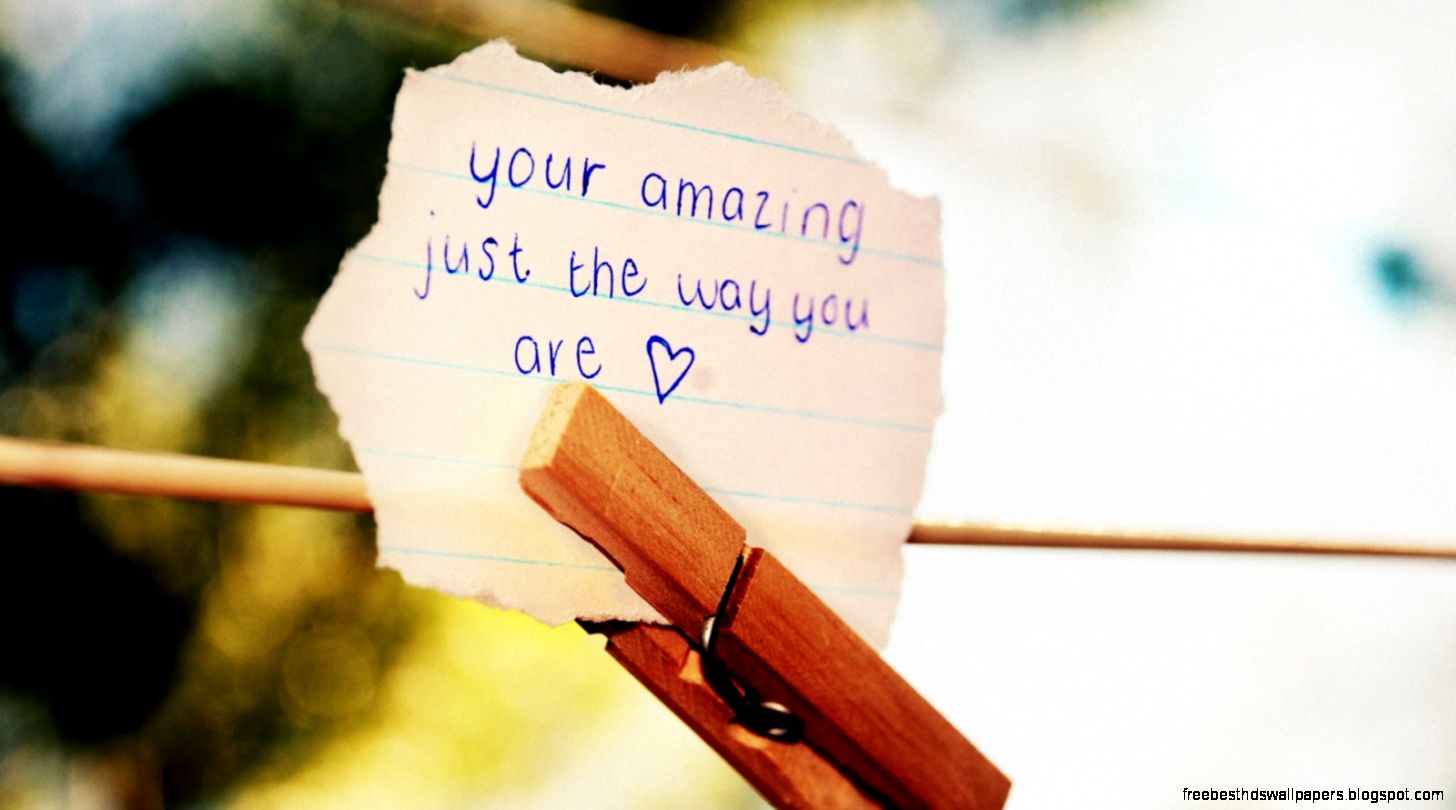 your amazing
just the way you
are ♡
freebesthdswallpapers.blogspot.com